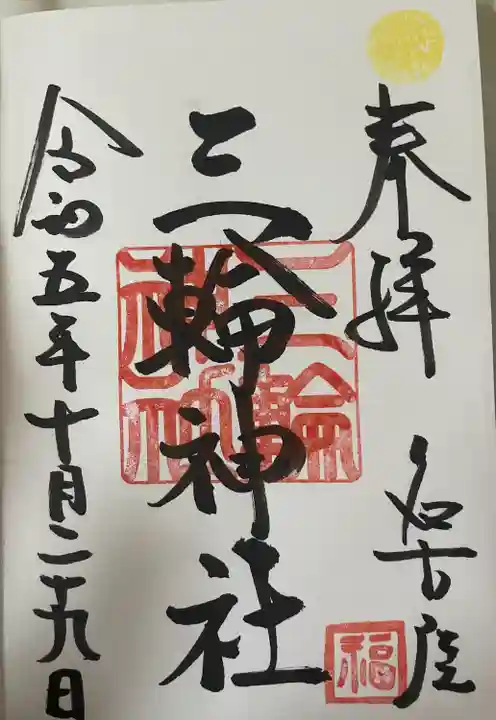 奉拝 名古屋
福
三輪神社
三輪神社
令和五年十月二十九日